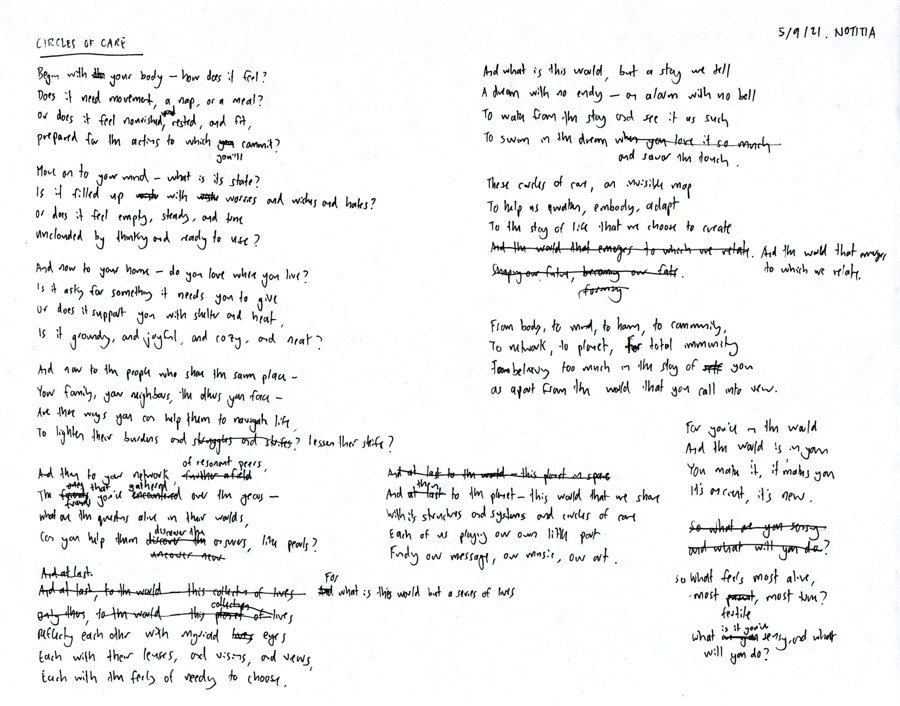 CIRCLES OF CARE
5/9/21. NOTITIA
Begin with the your body – how does it feel?
Does it need movement, a nap, or a meal?
or does it feel nourished, and rested, and fit,
prepared for the actions to which you commit?
you'll
Move on to your mind – what is its state?
Is it filled up with with worries and wishes and hates?
or does it feel empty, steady, and true
unclouded by thinking and ready to use?
And now to your home – do you love where you live?
Is it asking for something it needs you to give
or does it support you with shelter and heat,
Is it grounding, and joyful, and cozy, and neat?
And now to the people who share the same place –
Your family, your neighbors, the others you face –
Are there ways you can help them to navigate life,
To lighten their burdens and struggles and strifes? lessen their strife?
of resonant peers,
And then to your network further afield
ones that gathered
The friends you've encountered over the years –
friends
what are the questions alive in their worlds,
discover the
Can you help them discover the answers, like pearls?
uncover new
And at last.
And at last, to the world this collection of lives
collection
only then, to the world this planet of lives
Reflecting each other with myriad eyes
Each with their lenses, and visions, and views,
Each with the feeling of needing to choose.
And at last to the world – this planet in space
then
And at last to the planet – this world that we share
With its structures and systems and circles of care
Each of us playing our own little part
Finding our message, our music, our art.
For
And what is this world but a series of lives
And what is this world, but a story we tell
A dream with no ending – an alarm with no bell
To waken from the story and see it as such
To swim in the dream when you love it so much
and savor the touch.
These circles of care, an invisible map
To help us awaken, embody, adapt
To the story of life that we choose to create
And the world that emerges to which we relate. And the world that emerges
to which we relate.
Shaping our future, becoming our fate.
forming
From body, to mind, to home, to community,
To network, to planet, for total immunity
From believing too much in the story of self you
as apart from the world that you call into view.
For you're in the world
And the world is in you
You make it, it makes you
It's ancient, it's new.
So what are you sensing
and what will you do?
so what feels most alive,
most most true?
fertile
is it you're
what are you sensing, and what
will you do?